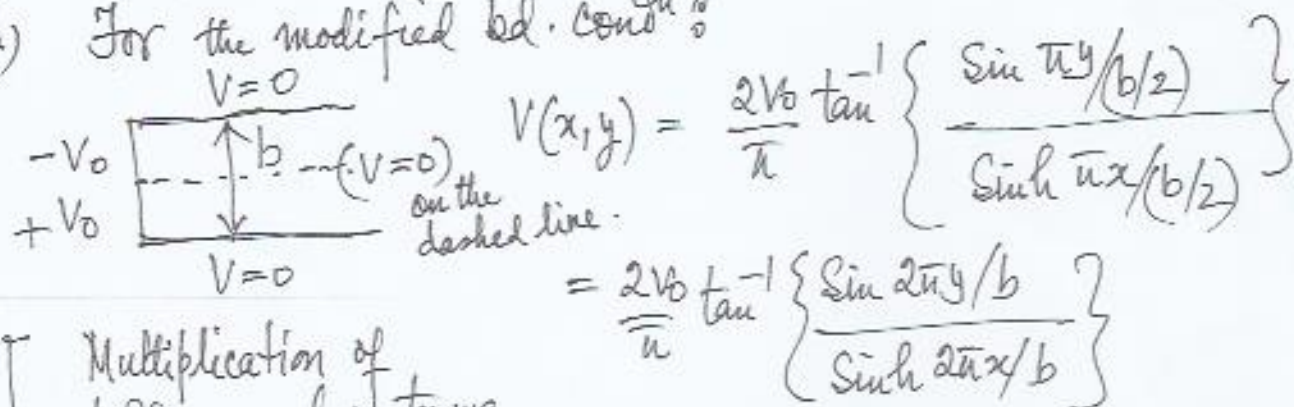 ) For the modified bd. condⁿ :
V=0
-V₀
b
--(V=0) on the dashed line.
+V₀
V=0
V(x,y) = 2V₀/π tan⁻¹ { Sin πy/(b/2) / Sinh πx/(b/2) }
= 2V₀/π tan⁻¹ { Sin 2πy/b / Sinh 2πx/b }
Multiplication of